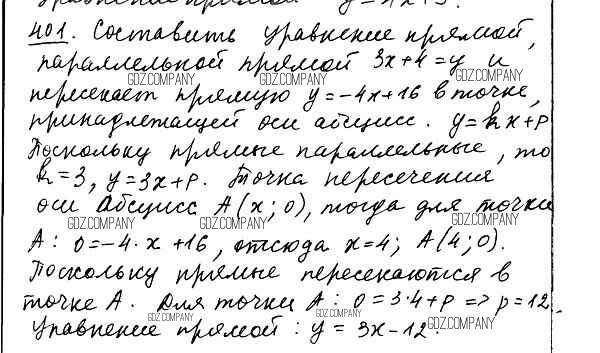 Уравнение прямой y=4x+3.
401. Составить уравнение прямой,
параллельной прямой 3x+4=y и
GDZ.COMPANY GDZ.COMPANY GDZ.COMPANY
пересекает прямую y=-4x+16 в точке,
принадлежащей оси абсцисс. y=kx+p
Поскольку прямые параллельные, то
k=3, y=3x+p. Точка пересечения
оси абсцисс A(x;0), тогда для точки
GDZ.COMPANY GDZ.COMPANY GDZ.COMPANY
A: 0=-4·x+16, отсюда x=4; A(4;0).
Поскольку прямые пересекаются в
точке A. Для точки A: 0=3·4+p => p=12.
GDZ.COMPANY GDZ.COMPANY GDZ.COMPANY
Уравнение прямой: y=3x-12.